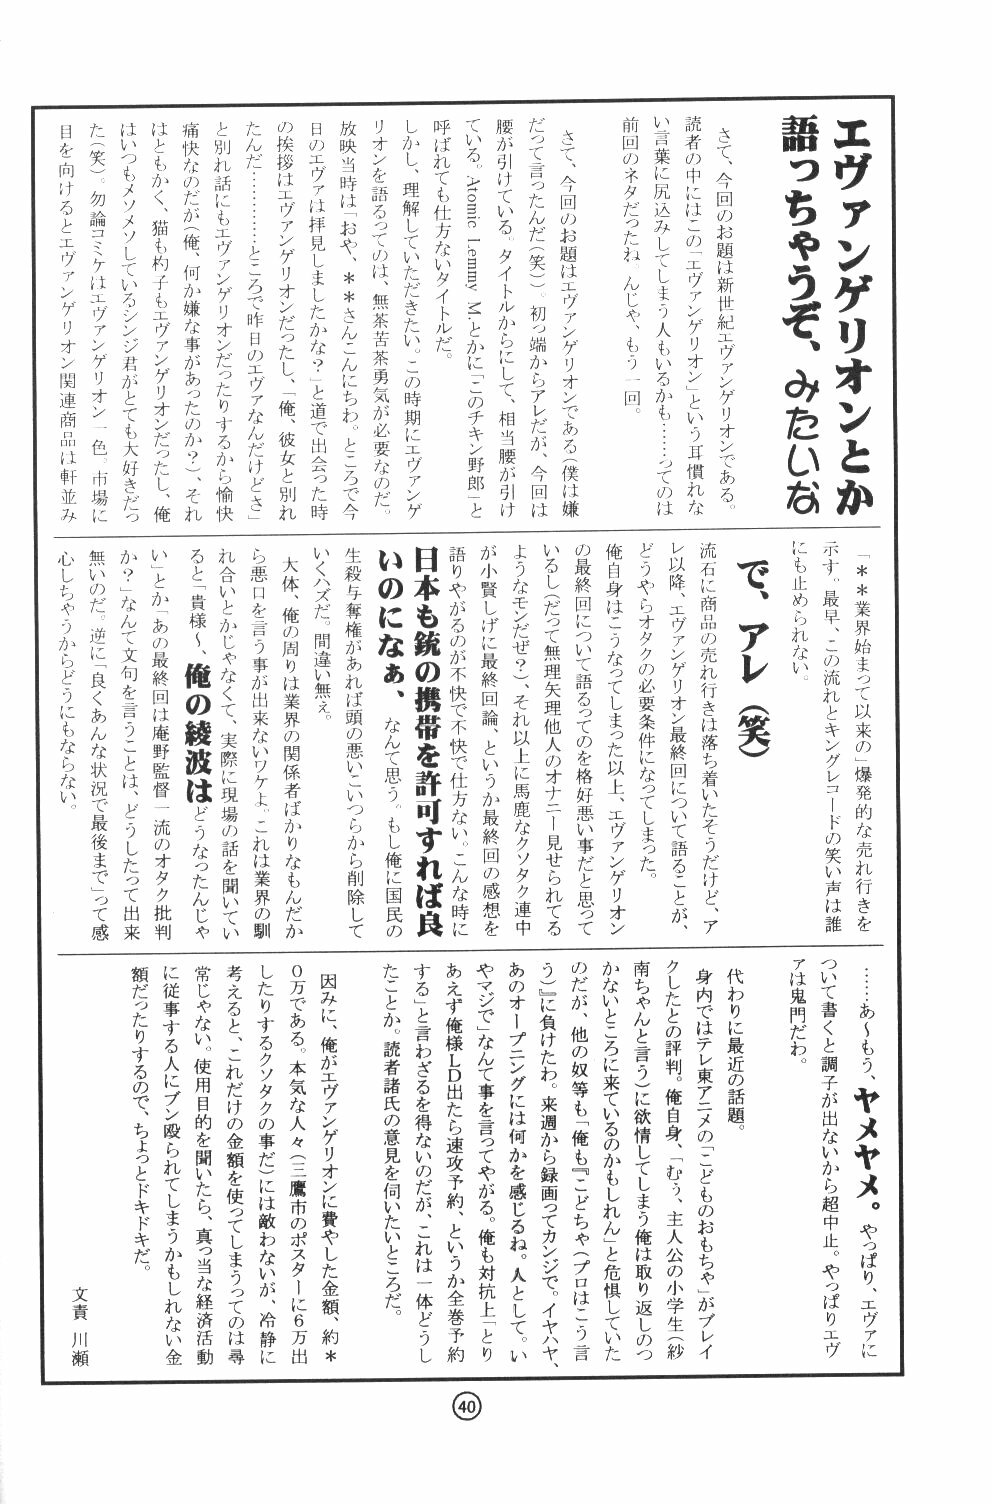 エヴァンゲリオンとか
語っちゃうぞ、みたいな
さて、今回のお題は新世紀エヴァンゲリオンである。
読者の中にはこの「エヴァンゲリオン」という耳慣れな
い言葉に尻込みしてしまう人もいるかも……ってのは
前回のネタだったね。んじゃ、もう一回。
さて、今回のお題はエヴァンゲリオンである（僕は嫌
だって言ったんだ（笑））。初っ端からアレだが、今回は
腰が引けている。タイトルからにして、相当腰が引け
ている。Atomic Lemmy M.とかに「このチキン野郎」と
呼ばれても仕方ないタイトルだ。
しかし、理解していただきたい。この時期にエヴァンゲ
リオンを語るってのは、無茶苦茶勇気が必要なのだ。
放映当時は「おや、＊＊さんこんにちわ。ところで今
日のエヴァは拝見しましたかな？」と道で出会った時
の挨拶はエヴァンゲリオンだったし、「俺、彼女と別れ
たんだ…………ところで昨日のエヴァなんだけどさ」
と別れ話にもエヴァンゲリオンだったりするから愉快
痛快なのだが（俺、何か嫌な事があったのか？）、それ
はともかく、猫も杓子もエヴァンゲリオンだったし、俺
はいつもメソメソしているシンジ君がとても大好きだっ
た（笑）。勿論コミケはエヴァンゲリオン一色。市場に
目を向けるとエヴァンゲリオン関連商品は軒並み
「＊＊業界始まって以来の」爆発的な売れ行きを
示す。最早、この流れとキングレコードの笑い声は誰
にも止められない。
で、アレ（笑）
流石に商品の売れ行きは落ち着いたそうだけど、ア
レ以降、エヴァンゲリオン最終回について語ることが、
どうやらオタクの必要条件になってしまった。
俺自身はこうなってしまった以上、エヴァンゲリオン
の最終回について語るってのを格好悪い事だと思って
いるし（だって無理矢理他人のオナニー見せられてる
ようなモンだぜ？）、それ以上に馬鹿なクソタク連中
が小賢しげに最終回論、というか最終回の感想を
語りやがるのが不快で不快で仕方ない。こんな時に
日本も銃の携帯を許可すれば良
いのになぁ、なんて思う。もし俺に国民の
生殺与奪権があれば頭の悪いこいつらから削除して
いくハズだ。間違い無え。
大体、俺の周りは業界の関係者ばかりなもんだか
ら悪口を言う事が出来ないワケよ。これは業界の馴
れ合いとかじゃなくて、実際に現場の話を聞いてい
ると「貴様～、俺の綾波はどうなったんじゃ
い」とか「あの最終回は庵野監督一流のオタク批判
か？」なんて文句を言うことは、どうしたって出来
無いのだ。逆に「良くあんな状況で最後まで」って感
心しちゃうからどうにもならない。
……あ～もう、ヤメヤメ。やっぱり、エヴァに
ついて書くと調子が出ないから超中止。やっぱりエヴ
ァは鬼門だわ。
代わりに最近の話題。
身内ではテレ東アニメの「こどものおもちゃ」がブレイ
クしたとの評判。俺自身、「むう、主人公の小学生（紗
南ちゃんと言う）に欲情してしまう俺は取り返しのつ
かないところに来ているのかもしれん」と危惧していた
のだが、他の奴等も「俺も『こどちゃ（プロはこう言
う）』に負けたわ。来週から録画ってカンジで。イヤハヤ、
あのオープニングには何かを感じるね。人として。い
やマジで」なんて事を言ってやがる。俺も対抗上「とり
あえず俺様LD出たら速攻予約、というか全巻予約
する」と言わざるを得ないのだが、これは一体どうし
たことか。読者諸氏の意見を伺いたいところだ。
因みに、俺がエヴァンゲリオンに費やした金額、約＊
０万である。本気な人々（三鷹市のポスターに６万出
したりするクソタクの事だ）には敵わないが、冷静に
考えると、これだけの金額を使ってしまうってのは尋
常じゃない。使用目的を聞いたら、真っ当な経済活動
に従事する人にブン殴られてしまうかもしれない金
額だったりするので、ちょっとドキドキだ。
文責 川瀬
40